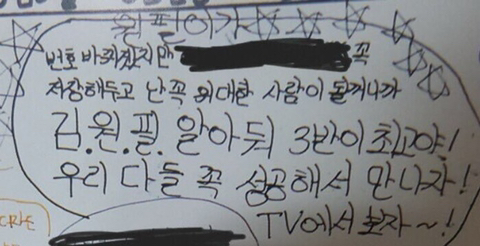 원필이가
번호 바뀌겠지만 꼭
저장해두고 난 꼭 위대한 사람이 될거니까
김.원.필. 알아둬 3반이 최고야!
우리 다들 꼭 성공해서 만나자!
TV에서 보자~!